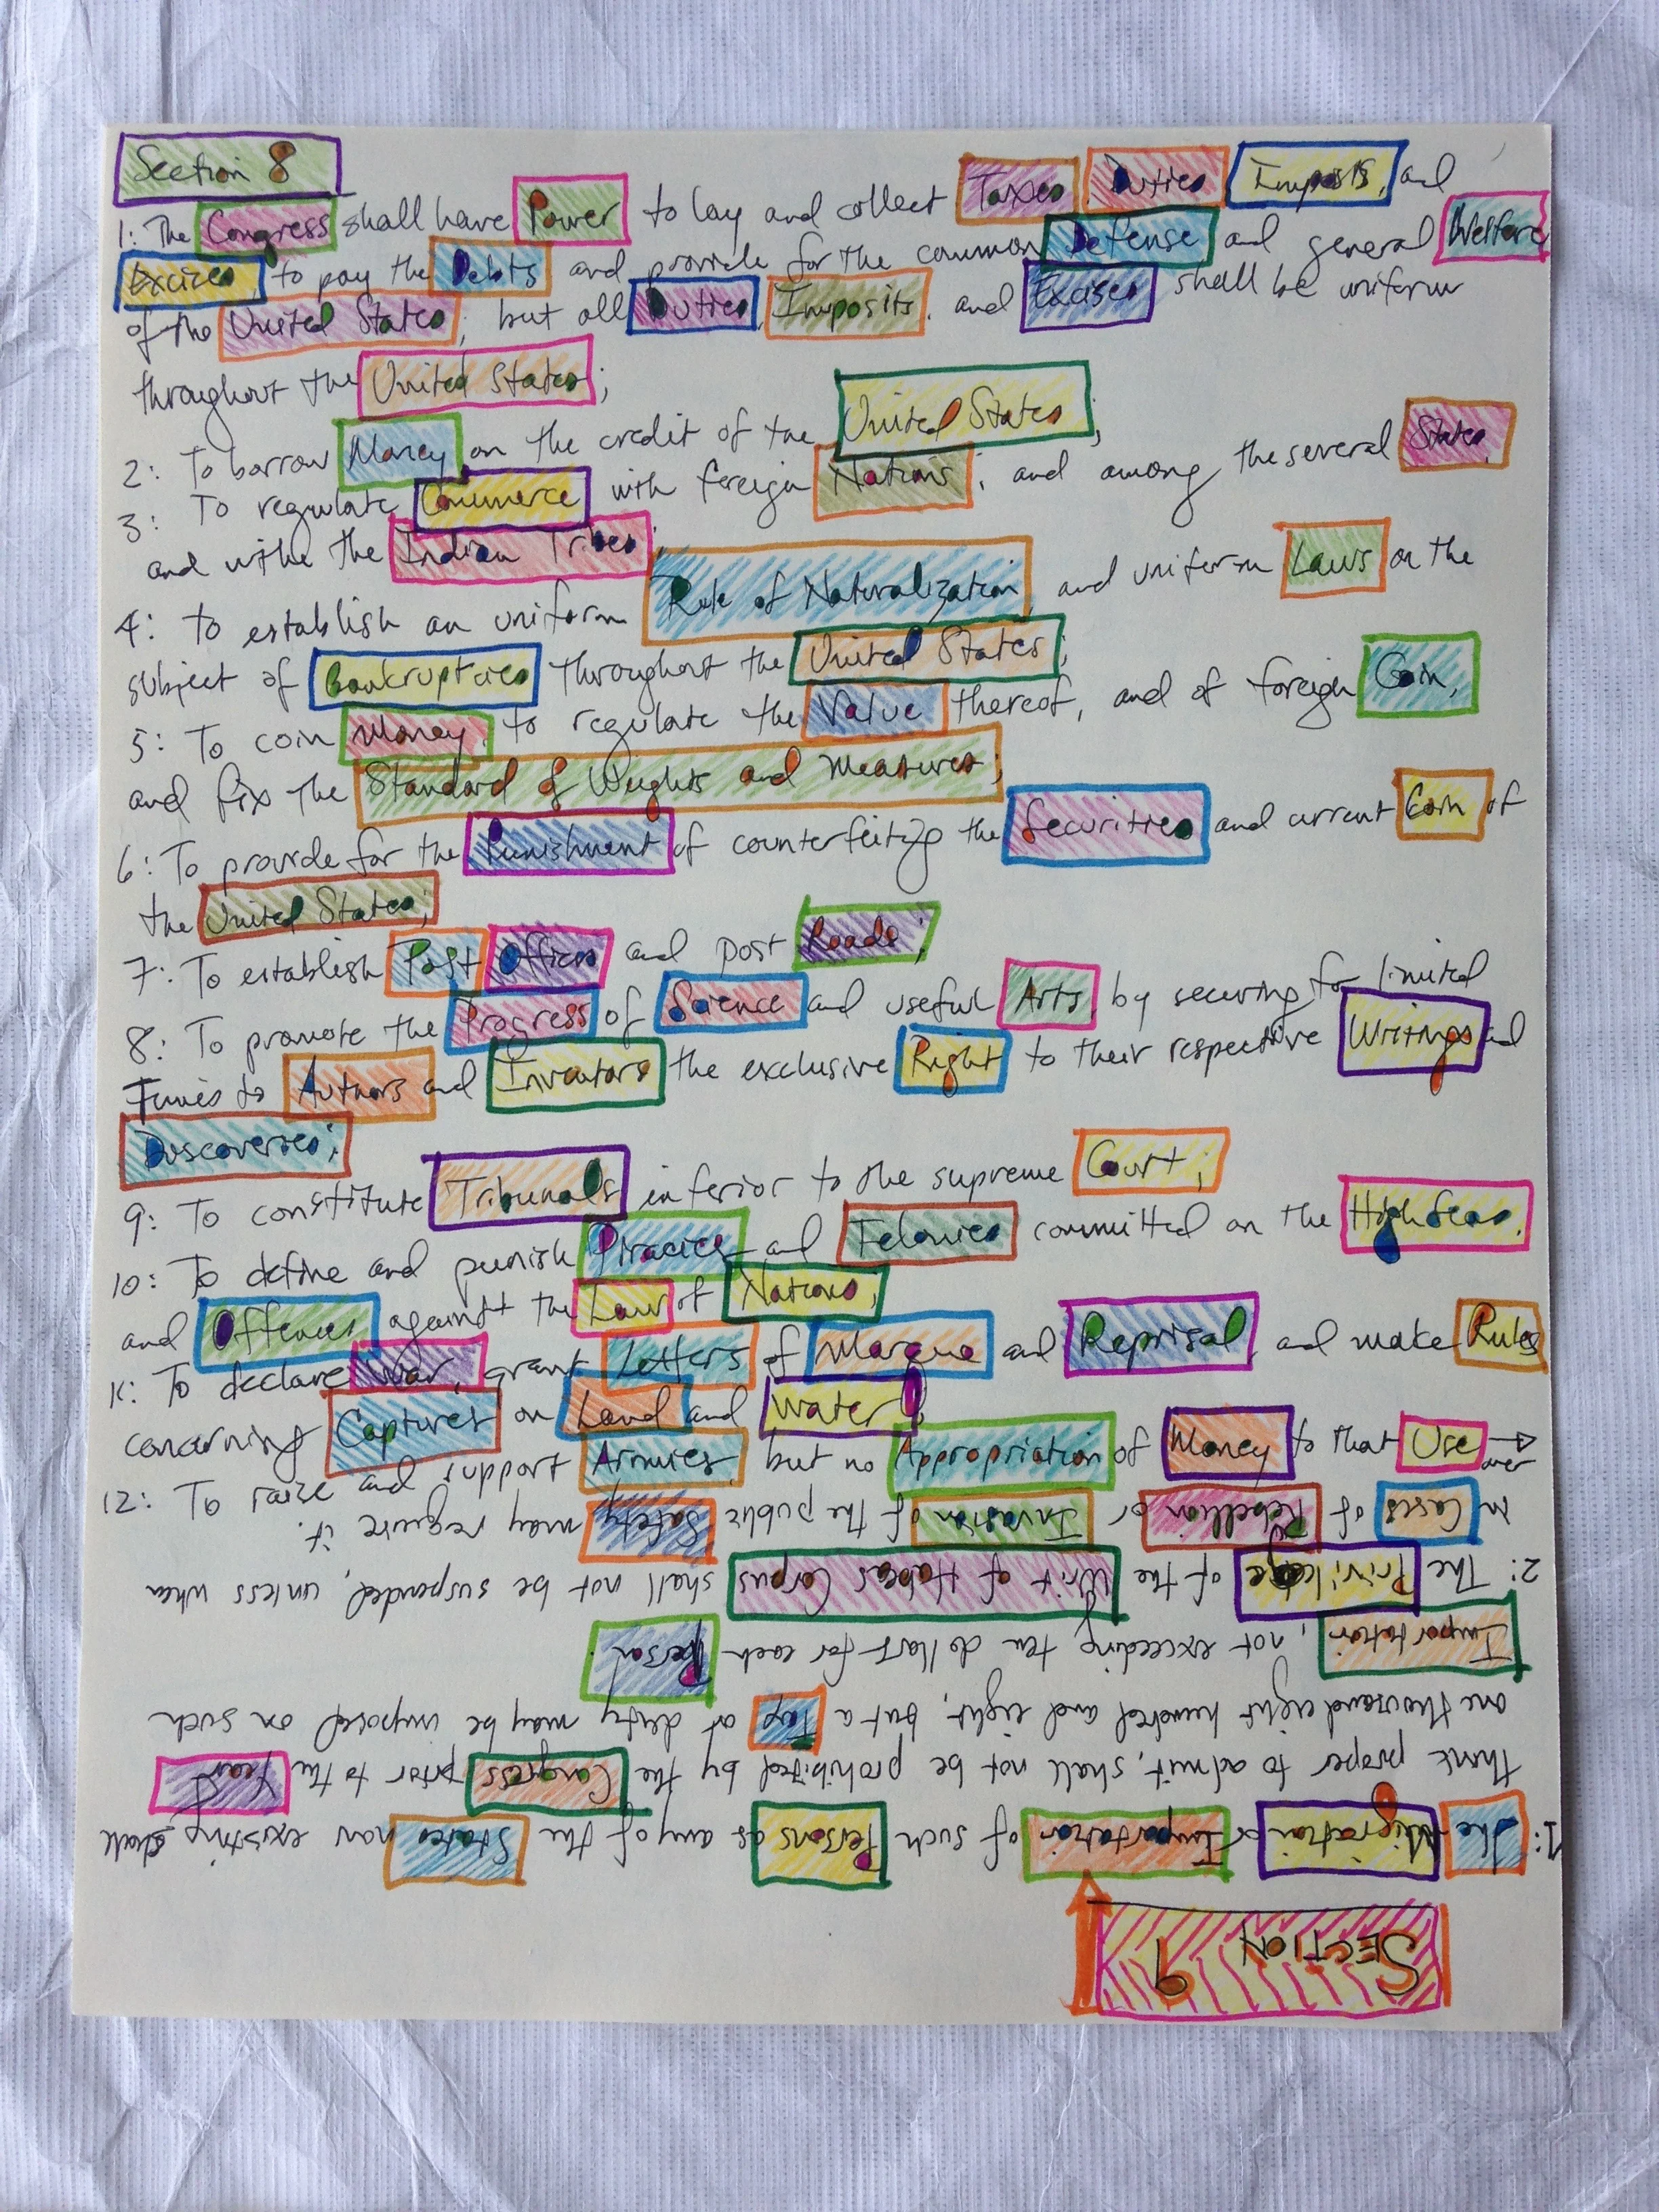 Section 8
1: The Congress shall have Power to lay and collect Taxes, Duties, Imposts, and
Excises, to pay the Debts and provide for the common Defense and general Welfare
of the United States; but all Duties, Imposits, and Excises shall be uniform
throughout the United States;
2: To borrow Money on the credit of the United States;
3: To regulate Commerce with foreign Nations; and among the several States,
and withe the Indian Tribes;
4: To establish an uniform Rule of Naturalization, and uniform Laws on the
subject of Bankruptcies throughout the United States;
5: To coin Money, to regulate the Value thereof, and of foreign Coin,
and fix the Standard of Weights and Measures;
6: To provide for the Punishment of counterfeitig the Securities and current Coin of
the United States;
7: To establish Post Offices and post Roads;
8: To promote the Progress of Science and useful Arts, by securing for limited
Times to Authors and Inventors the exclusive Right to their respective Writings and
Discoveries;
9: To constitute Tribunals inferior to the supreme Court;
10: To define and punish Piracies and Felonies committed on the High Seas,
and Offences against the Law of Nations;
11: To declare War, grant Letters of Marque and Reprisal, and make Rules
concerning Captures on Land and Water;
12: To raise and support Armies, but no Appropriation of Money to that Use →
over
SECTION 9
1: The Migration or Importation of such Persons as any of the States now existing shall
think proper to admit, shall not be prohibited by the Congress prior to the Year
one thousand eight hundred and eight, but a Tax or duty may be imposed on such
Importation, not exceeding ten dollars for each Person.
2: The Privilege of the Writ of Habeas Corpus shall not be suspended, unless when
in Cases of Rebellion or Invasion of the public Safety may require it.